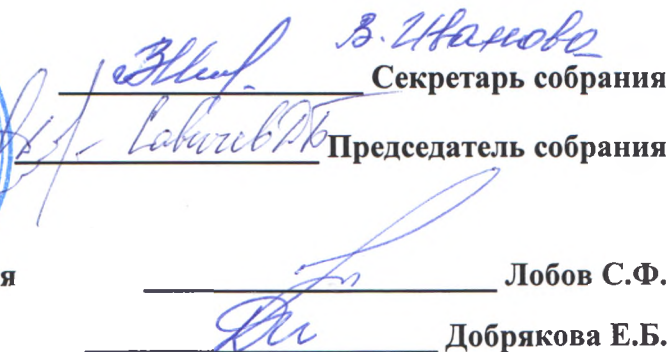 В. Иванова
Секретарь собрания
Савичев ДБ Председатель собрания
я Лобов С.Ф.
Добрякова Е.Б.